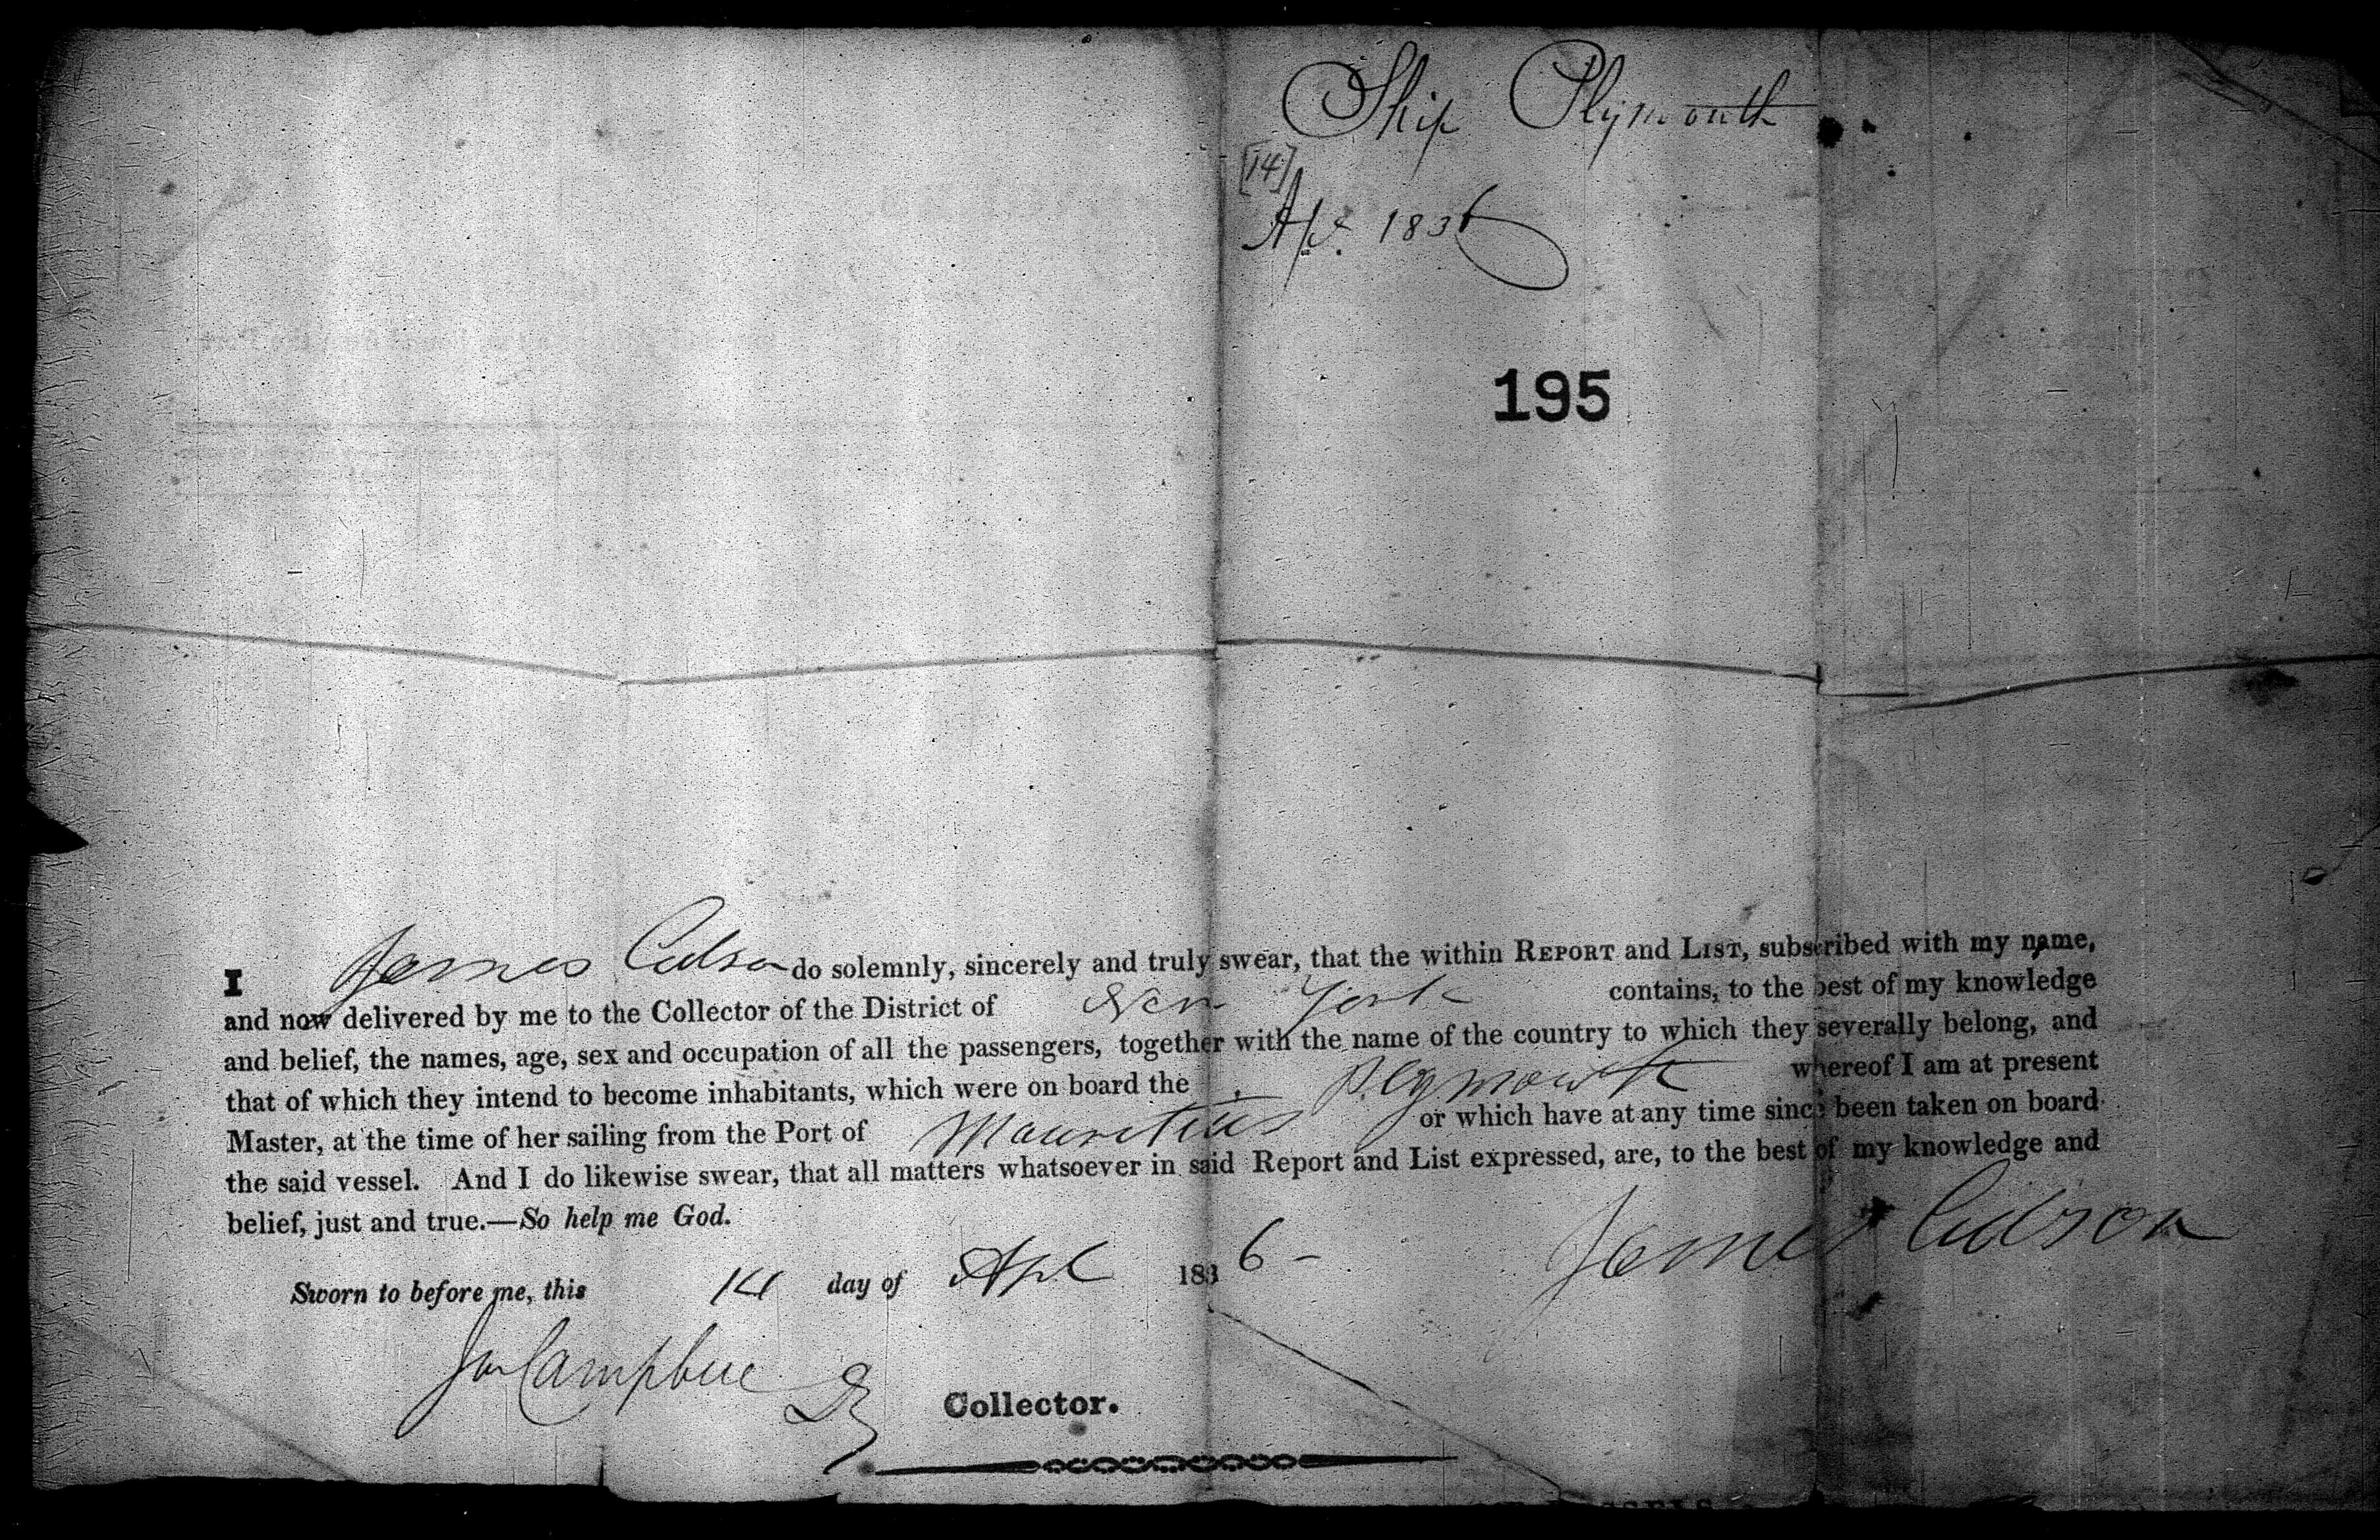 Ship Plymouth
[14]
Apl. 1836
195
I James Cutson do solemnly, sincerely and truly swear, that the within REPORT and LIST, subscribed with my name,
and now delivered by me to the Collector of the District of New York contains, to the best of my knowledge
and belief, the names, age, sex and occupation of all the passengers, together with the name of the country to which they severally belong, and
that of which they intend to become inhabitants, which were on board the Plymouth whereof I am at present
Master, at the time of her sailing from the Port of Mauritius or which have at any time since been taken on board
the said vessel. And I do likewise swear, that all matters whatsoever in said Report and List expressed, are, to the best of my knowledge and
belief, just and true.—So help me God.
James
Sworn to before me, this 14 day of Apl 1836 -
Campbell Dy
Collector.